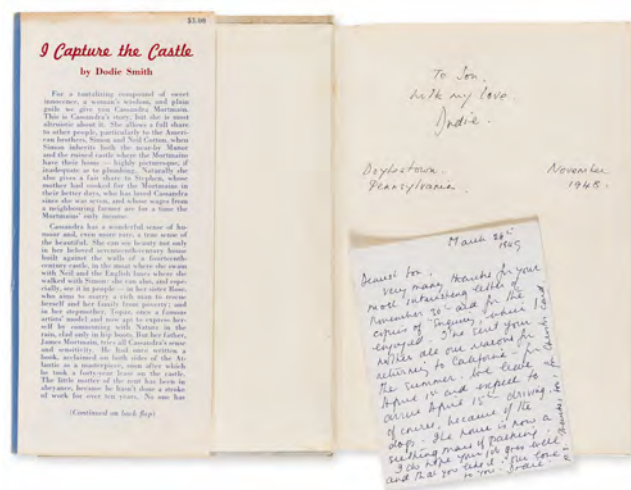 $3.00
I Capture the Castle
by Dodie Smith
For a tantalizing compound of sweet
innocence, a woman's wisdom, and plain
guile we give you Cassandra Mortmain.
This is Cassandra's story, but she is most
altruistic about it. She allows a full share
to other people, particularly to the Ameri-
can brothers, Simon and Neil Cotton, when
Simon inherits both the near-by Manor
and the ruined castle where the Mortmains
have their home — highly picturesque, if
inadequate as to plumbing. Naturally she
also gives a fair share to Stephen, whose
mother had cooked for the Mortmains in
their better days, who has loved Cassandra
since she was seven, and whose wages from
a neighbouring farmer are for a time the
Mortmains' only income.
Cassandra has a wonderful sense of hu-
mour and, even more rare, a true sense of
the beautiful. She can see beauty not only
in her beloved seventeenth-century house
built against the walls of a fourteenth-
century castle, in the moat where she swam
with Neil and the English lanes where she
walked with Simon: she can also, and espe-
cially, see it in people — in her sister Rose,
who aims to marry a rich man to rescue
herself and her family from poverty; and
in her stepmother, Topaz, once a famous
artists' model and now apt to express her-
self by communing with Nature in the
rain, clad only in hip boots. But her father,
James Mortmain, tries all Cassandra's sense
and sensitivity. He had once written a
book, acclaimed on both sides of the At-
lantic as a masterpiece, soon after which
he took a forty-year lease on the castle.
The little matter of the rent has been in
abeyance, because he hasn't done a stroke
of work for over ten years. No one has
(Continued on back flap)
To Jon.
with my love.
Dodie.
Doylestown.
Pennsylvania.
November
1948.
March 26th
1949
Dearest Jon.
Very many thanks for your
most interesting letter of
November 30th and for the
copies of "Inquiry", which I
enjoyed. I've sent your
mother all our reasons for
returning to California – for
the summer. We leave
April 1st and expect to
arrive April 15th – driving,
of course, because of the
dogs. The house is now a
seething mass of packing.
I do hope your job goes well
and that you like it. Our love
to you. Dodie.